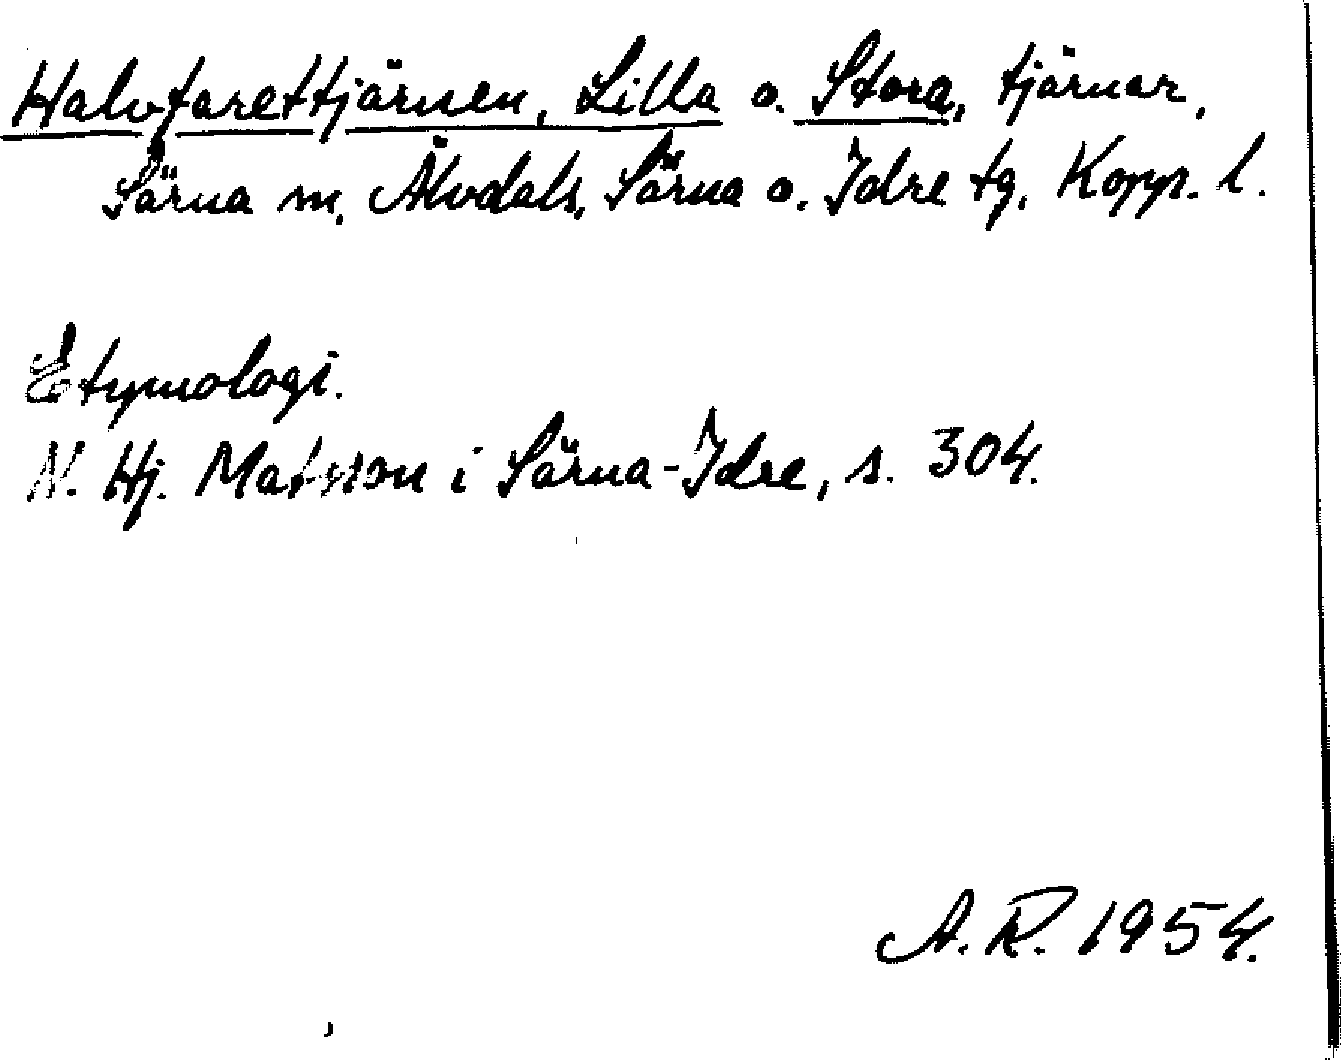 Halvfarettjärnen, Lilla o. Stora, tjärnar,
Särna sn, Älvdals, Särna o. Idre tg, Kopp. l.
Etymologi.
N. Hj. Matsson i Särna-Idre, s. 304.
A.R. 1954.